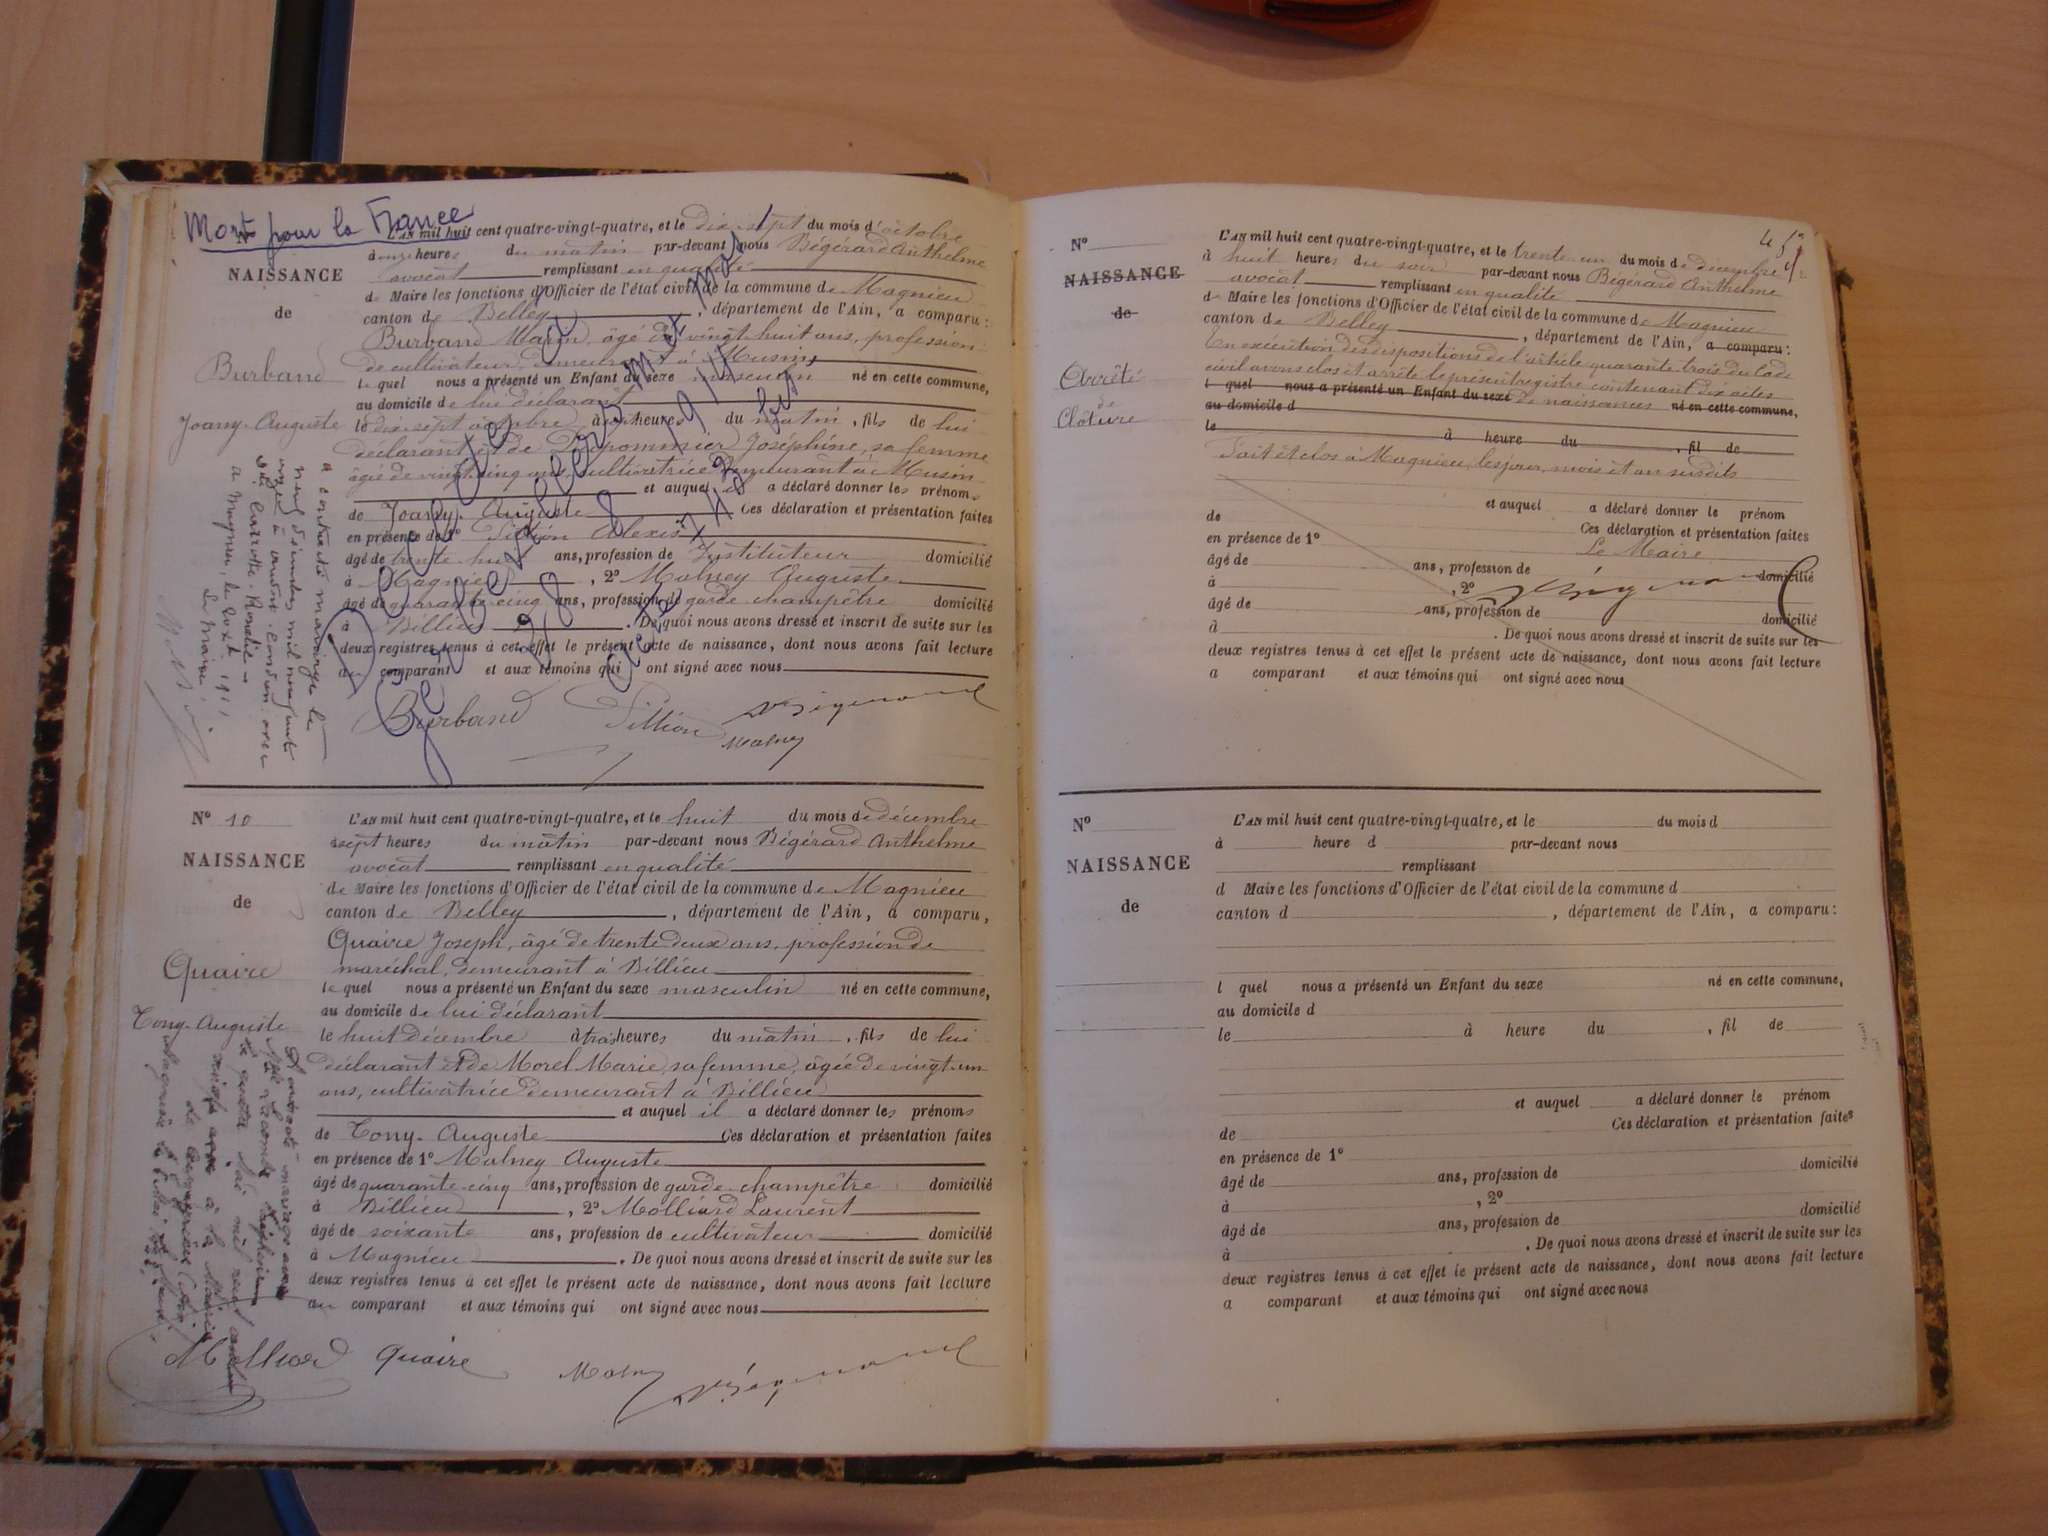 Mort pour la France
L'AN mil huit cent quatre-vingt-quatre, et le dix sept du mois d'octobre
à onze heures du matin par-devant nous Bégérard Anthelme
avocat remplissant en qualité
de Maire les fonctions d'Officier de l'état civil de la commune de Magnieu
canton de Belley, département de l'Ain, a comparu:
Burband Marin, âgé de vingt huit ans, profession
de cultivateur, demeurant à Musin,
lequel nous a présenté un Enfant du sexe masculin né en cette commune,
au domicile de lui déclarant
le dix-sept octobre, à heures du matin, fils de lui
déclarant et de Josephine, sa femme
âgée de vingt cinq ans, cultivatrice demeurant à Musin
et auquel il a déclaré donner les prénoms
de Joany-Auguste Ces déclaration et présentation faites
en présence de 1° Sillion Alexis
âgé de trente huit ans, profession de Instituteur domicilié
à Magnieu, 2° Malney Auguste
âgé de quarante-cinq ans, profession de garde champêtre domicilié
à Billieu. De quoi nous avons dressé et inscrit de suite sur les
deux registres tenus à cet effet le présent acte de naissance, dont nous avons fait lecture
au comparant et aux témoins qui ont signé avec nous
NAISSANCE
de
Burband
Joany-Auguste
a contracté mariage le
avec
Le Maire
Burband Sillion
Malney
N° 10
NAISSANCE
de
Quaire
Tony-Auguste
L'AN mil huit cent quatre-vingt-quatre, et le huit du mois de décembre
à sept heures du matin par-devant nous Bégérard Anthelme
avocat remplissant en qualité
de Maire les fonctions d'Officier de l'état civil de la commune de Magnieu
canton de Belley, département de l'Ain, a comparu,
Quaire Joseph, âgé de trente deux ans, profession de
maréchal, demeurant à Billieu
lequel nous a présenté un Enfant du sexe masculin né en cette commune,
au domicile de lui déclarant
le huit décembre à trois heures du matin, fils de lui
déclarant et de Morel Marie, sa femme, âgée de vingt-un
ans, cultivatrice demeurant à Billieu
et auquel il a déclaré donner les prénoms
de Tony-Auguste Ces déclaration et présentation faites
en présence de 1° Malney Auguste
âgé de quarante-cinq ans, profession de garde champêtre domicilié
à Billieu, 2° Molliard Laurent
âgé de soixante ans, profession de cultivateur domicilié
à Magnieu. De quoi nous avons dressé et inscrit de suite sur les
deux registres tenus à cet effet le présent acte de naissance, dont nous avons fait lecture
au comparant et aux témoins qui ont signé avec nous
Molliard Quaire Malney
N°
NAISSANCE
de
Arrêté
de
Clôture
L'AN mil huit cent quatre-vingt-quatre, et le trente-un du mois de décembre
à huit heures du soir par-devant nous Bégérard Anthelme
avocat remplissant en qualité
de Maire les fonctions d'Officier de l'état civil de la commune de Magnieu
canton de Belley, département de l'Ain, a comparu:
En exécution des dispositions de l'article quarante-trois du Code
civil avons clos et arrêté le présent registre contenant dix actes
l quel nous a présenté un Enfant du sexe de naissances né en cette commune,
au domicile d
le à heure du, fil de
Fait et clos à Magnieu, les jour, mois et an susdits
et auquel a déclaré donner le prénom
de Ces déclaration et présentation faites
en présence de 1° Le Maire
âgé de ans, profession de domicilié
à, 2°
âgé de ans, profession de domicilié
à. De quoi nous avons dressé et inscrit de suite sur les
deux registres tenus à cet effet le présent acte de naissance, dont nous avons fait lecture
a comparant et aux témoins qui ont signé avec nous
N°
NAISSANCE
de
L'AN mil huit cent quatre-vingt-quatre, et le du mois d
à heure d par-devant nous
remplissant
d Maire les fonctions d'Officier de l'état civil de la commune d
canton d, département de l'Ain, a comparu:
l quel nous a présenté un Enfant du sexe né en cette commune,
au domicile d
le à heure du, fil de
et auquel a déclaré donner le prénom
de Ces déclaration et présentation faites
en présence de 1°
âgé de ans, profession de domicilié
à, 2°
âgé de ans, profession de domicilié
à. De quoi nous avons dressé et inscrit de suite sur les
deux registres tenus à cet effet le présent acte de naissance, dont nous avons fait lecture
a comparant et aux témoins qui ont signé avec nous